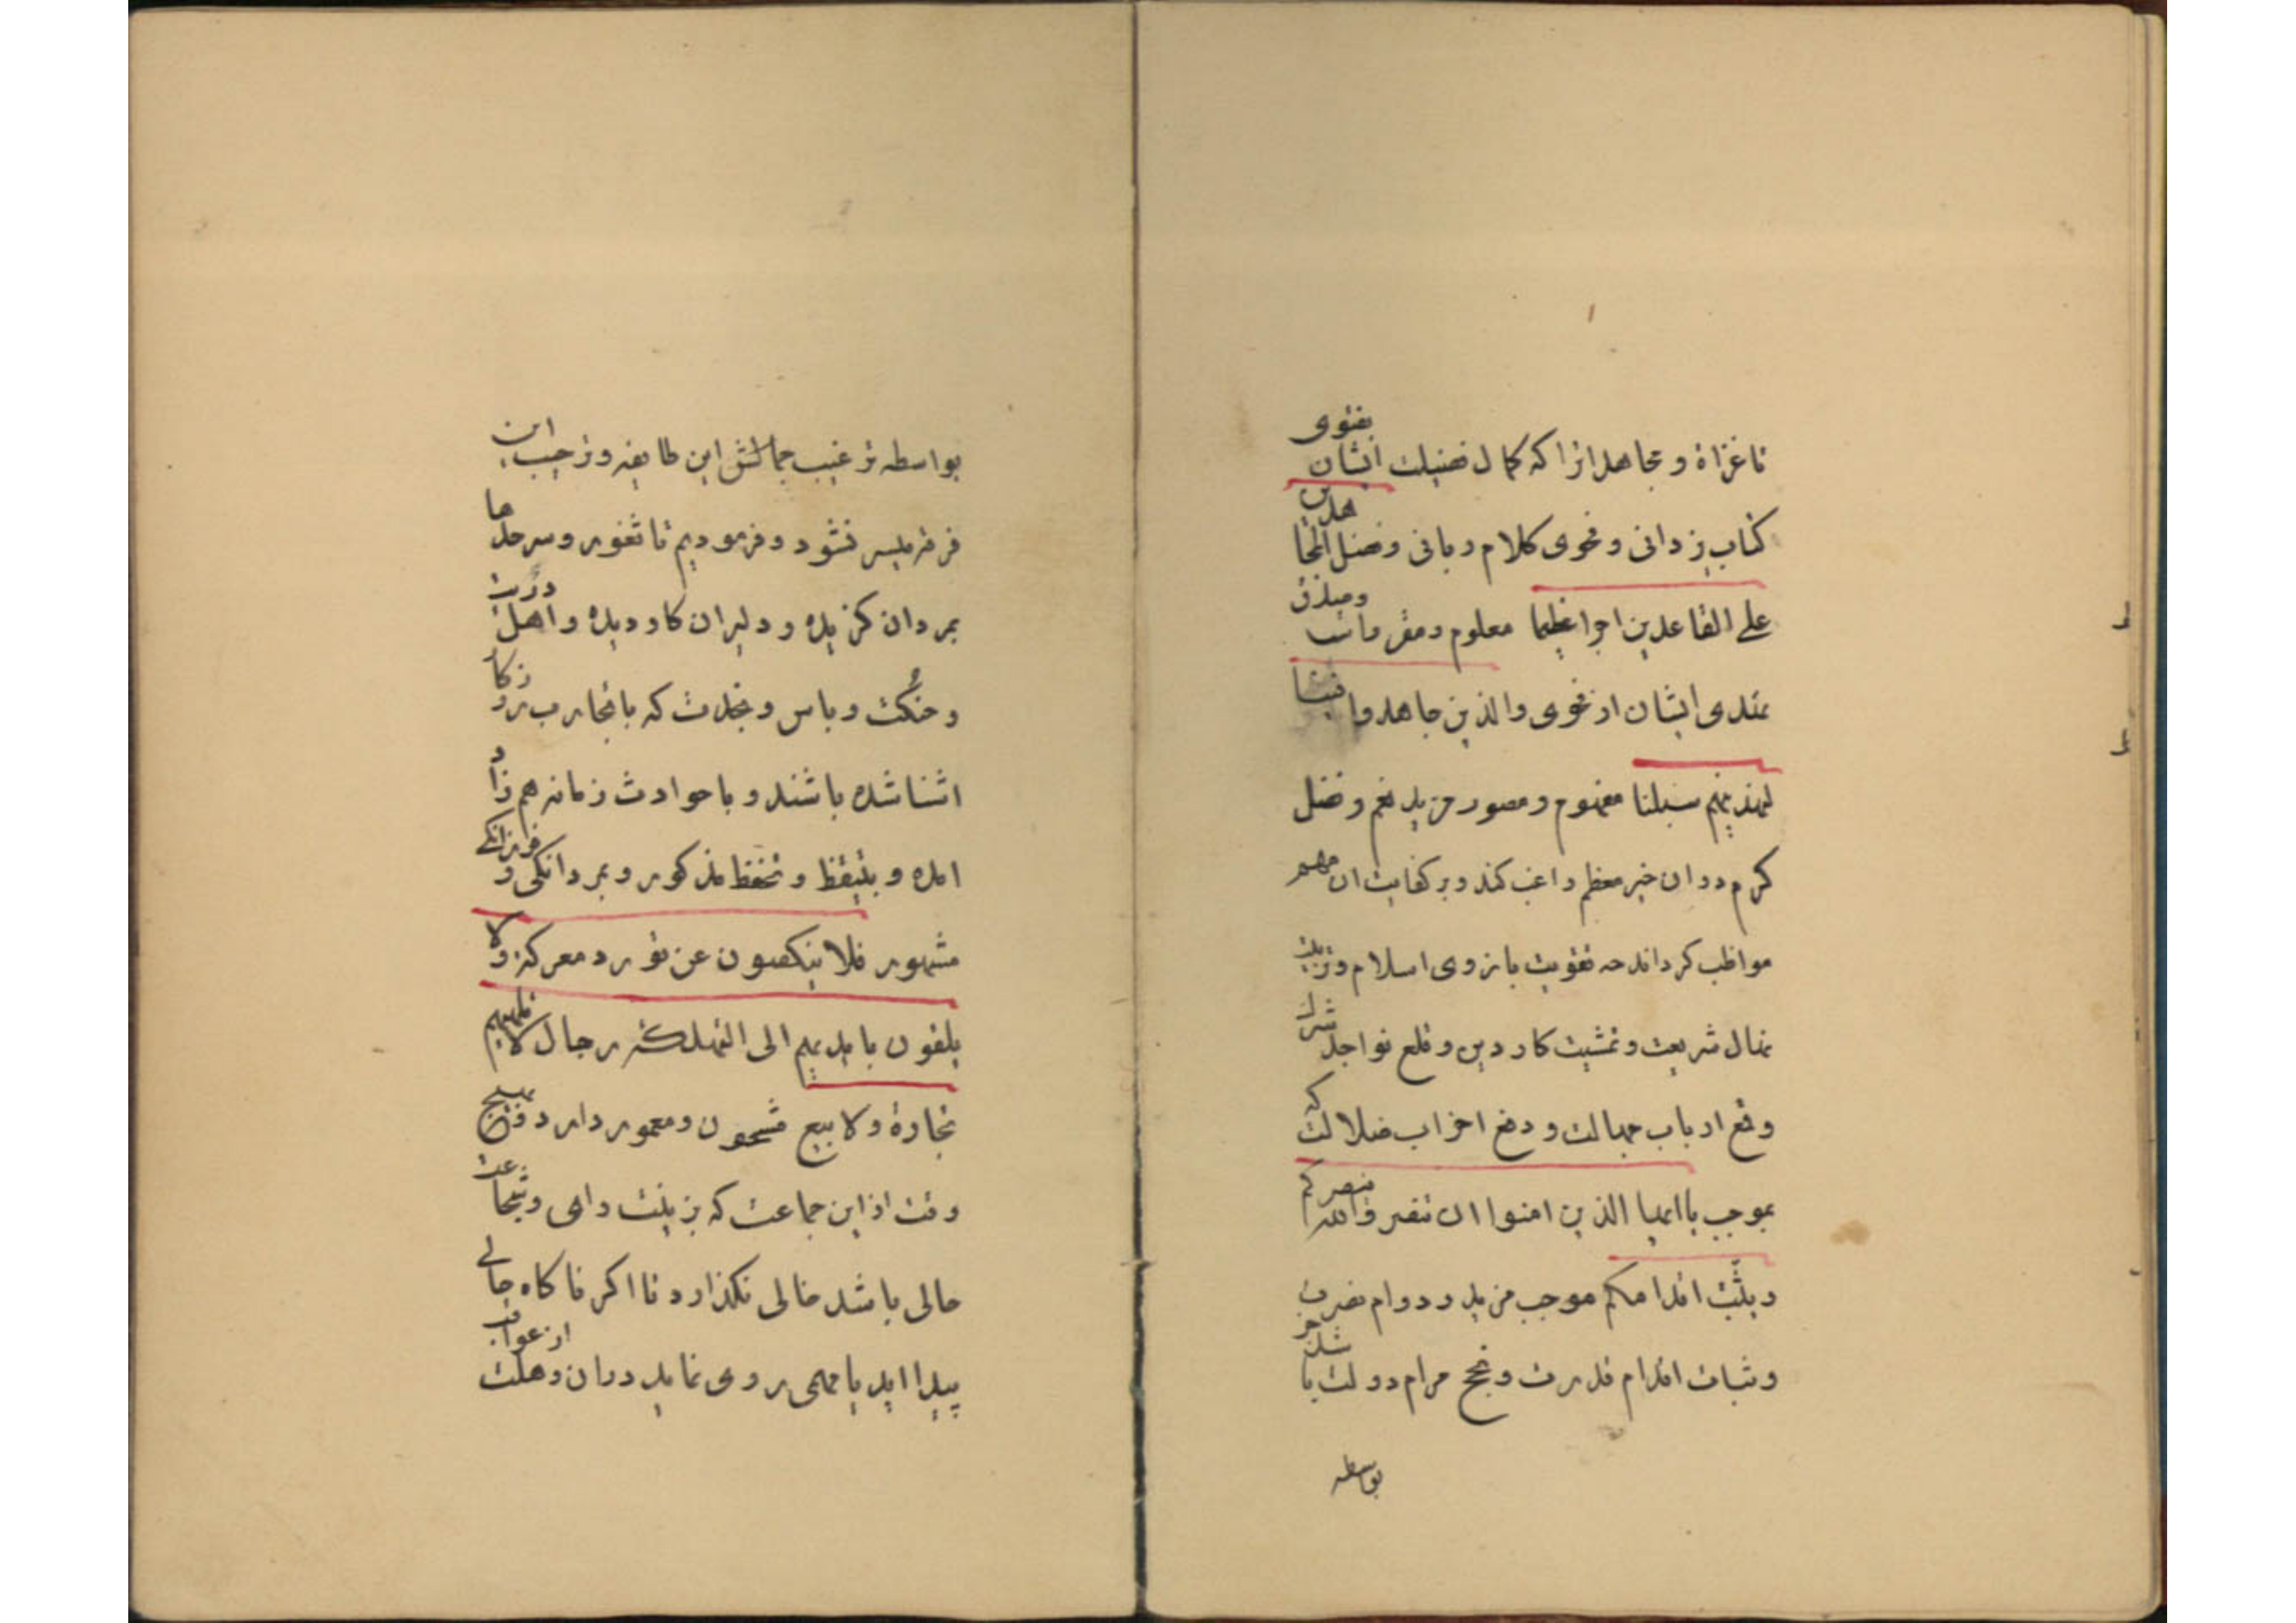 تا غزاة و مجاهدانرا که کمال فضیلت ایشان بفتوی
کتاب یزدانی و فحوی کلام ربانی و فضل المجاهدین
علی القاعدین اجرا عظیما معلوم و مقرر است و صدق
تمدی ایشان از فحوی والذین جاهدوا فینا
لنهدینهم سبلنا مفهوم و مصور مزید نعم و فضل
کرم دران خیر معظم راغب کند و بر کفایت ان مهم
مواظب کرداند چه تقویت بازوی اسلام و تربیت
نهال شریعت و تمشیت کار دین و قلع نواجذ شرک
و قمع ارباب جهالت و دفع احزاب ضلالت که
بموجب یا ایها الذین امنوا ان تنصروا الله ینصرکم
و یثبت اقدامکم موجب مزید و دوام نصرت
و ثبات اقدام قدرت و نجح مرام دولت باشد جز
بواسطه
بواسطه ترغیب جمالش این طایفه و ترحیب این
فرقه میسر نشود و فرمودیم تا ثغور و سرحدها
بمردان کزیده و دلیران کار دیده و اهل دربت
و حنکت و باس و نجدت که با تجارب روزکار
اشنا شده باشند و با حوادث زمانه هم زاد
امده و بتیقظ و تحفظ مذکور و بمردانکی و فرزانکی
مشهور فلا ینکصون عن نورد معرکة ولا
یلقون بایدیهم الی التهلکة رجال لا تلهیهم
تجارة ولا بیع مشحون و معمور دارد و هیچ
وقت از این جماعت که بزینت رای و شجاعت
حالی باشد خالی نکذارد تا اکر ناکاه حالی
پیدا اید یا مهمی روی نماید دران وهلت از عواقب